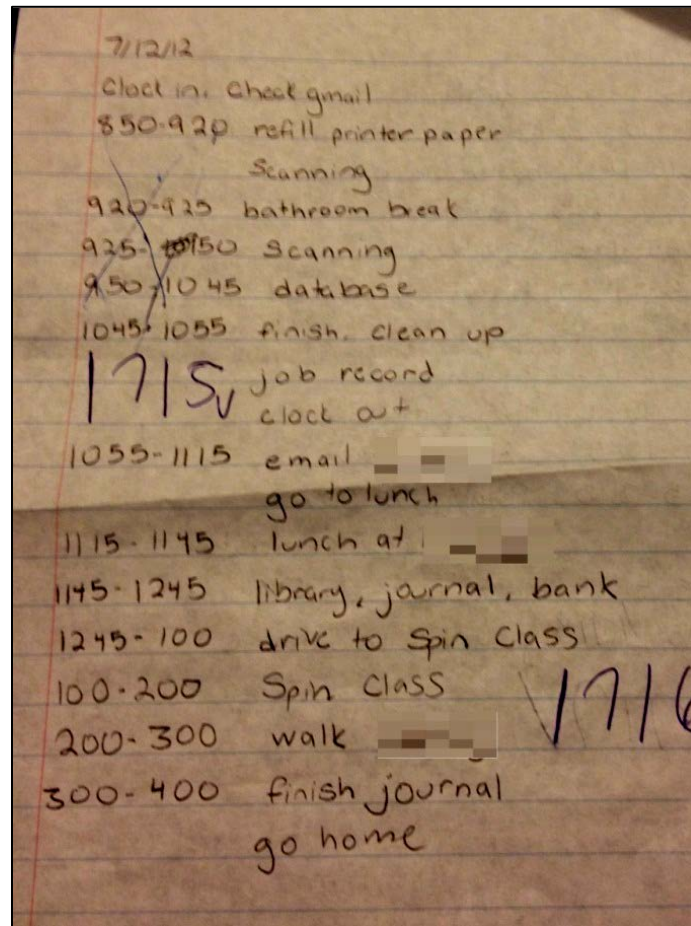 7/12/12
Clock in. Check gmail
850-920 refill printer paper
Scanning
920-925 bathroom break
925- 950 Scanning
950-1045 database
1045-1055 finish. clean up
1715 job record
clock out
1055-1115 email
go to lunch
1115-1145 lunch at
1145-1245 library, journal, bank
1245-100 drive to Spin Class
100-200 Spin Class
1716
200-300 walk
300-400 finish journal
go home